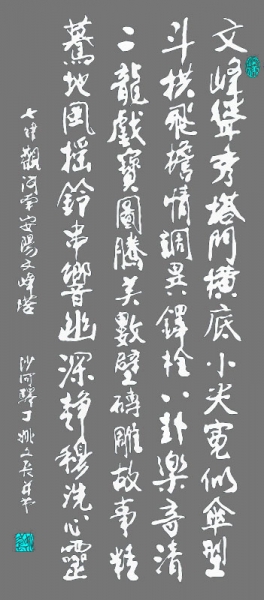 文峰聳秀塔門橫底小尖寬似傘型
斗栱飛檐情調異鐸拴八卦樂音清
二龍戲寶圖騰美數壁磚雕故事精
驀地風搖鈴串響幽深靜穆洗心靈
七律觀河南安陽文峰塔 沙河驛丁姚文長並書